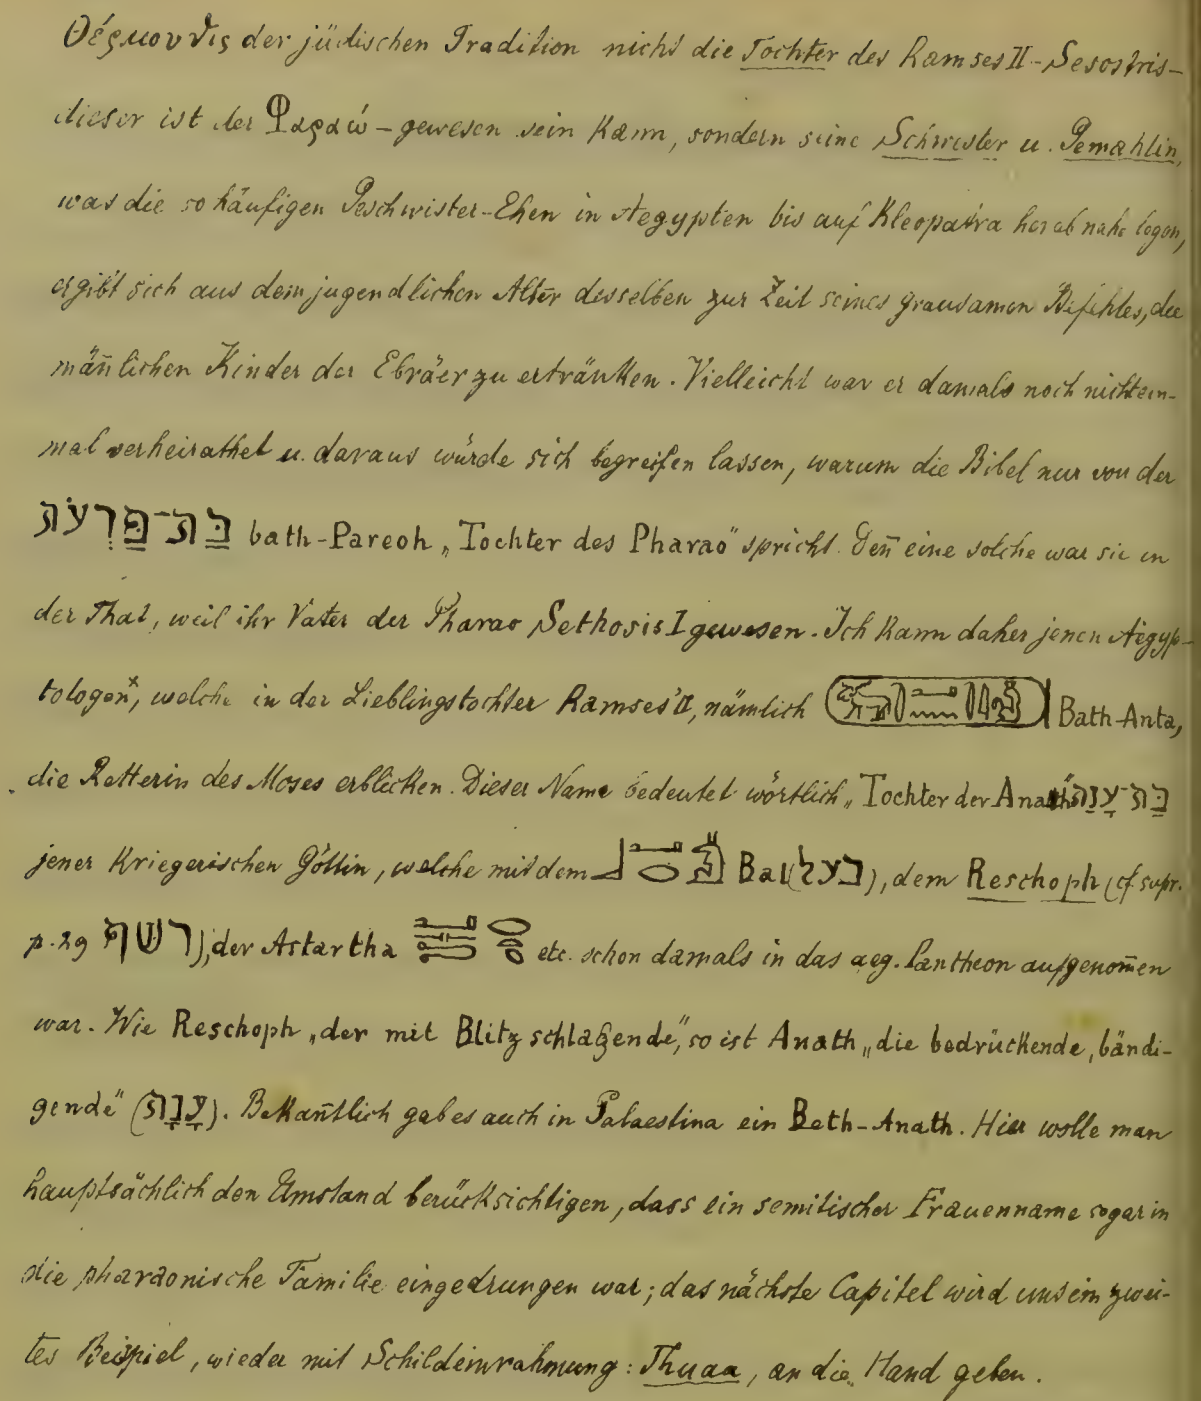 Θέρμουθις der jüdischen Tradition nicht die Tochter des Ramses II - Sesostris -
dieser ist der Φαραώ - gewesen sein kann, sondern seine Schwester u. Gemahlin,
was die so häufigen Geschwister-Ehen in Aegypten bis auf Kleopatra herab nahe legen,
ergibt sich aus dem jugendlichen Alter desselben zur Zeit seines grausamen Befehles, die
män̄lichen Kinder der Ebräer zu ertränken. Vielleicht war er damals noch nicht ein-
mal verheirathet u. daraus würde sich begreifen lassen, warum die Bibel nur von der
בַּת־פַּרְעֹה bath-Pareoh „Tochter des Pharao" spricht. Den̄ eine solche war sie in
der That, weil ihr Vater der Pharao Sethosis I gewesen. Ich kann daher jenen Aegyp-
tologen×, welche in der Lieblingstochter Ramses' II, nämlich Bath-Anta,
die Retterin des Moses erblicken. Dieser Name bedeutet wörtlich „Tochter der Anath" בַּת־עֲנָת
jener kriegerischen Göttin, welche mit dem Bal (בעל), dem Reschoph (cf supr.
p. 29 רשף), der Astartha etc. schon damals in das aeg. Pantheon aufgenom̄en
war. Wie Reschoph „der mit Blitz schlagende", so ist Anath „die bedrückende, bändi-
gende" (עֲנָת). Bekan̄tlich gab es auch in Palaestina ein Beth-Anath. Hier wolle man
hauptsächlich den Umstand berücksichtigen, dass ein semitischer Frauenname sogar in
die pharaonische Familie eingedrungen war; das nächste Capitel wird uns ein zwei-
tes Beispiel, wieder mit Schildeinrahmung: Thuaa, an die Hand geben.